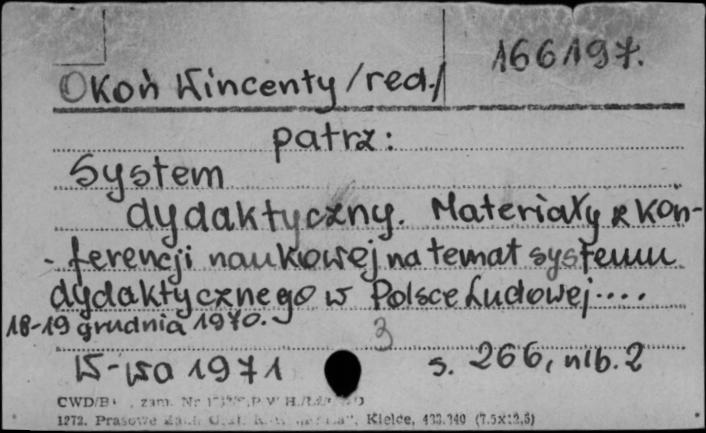 166197.
Okoń Wincenty /red./
patrz:
System
dydaktyczny. Materiały z kon-
- ferencji naukowej na temat systemu
dydaktycznego w Polsce Ludowej....
18-19 grudnia 1970.
3
W-wa 1971 s. 266, nlb. 2
CWD/B zam. Nr
1272. Prasowe Zakł. Kielce, 433.340 (7.5x12,5)